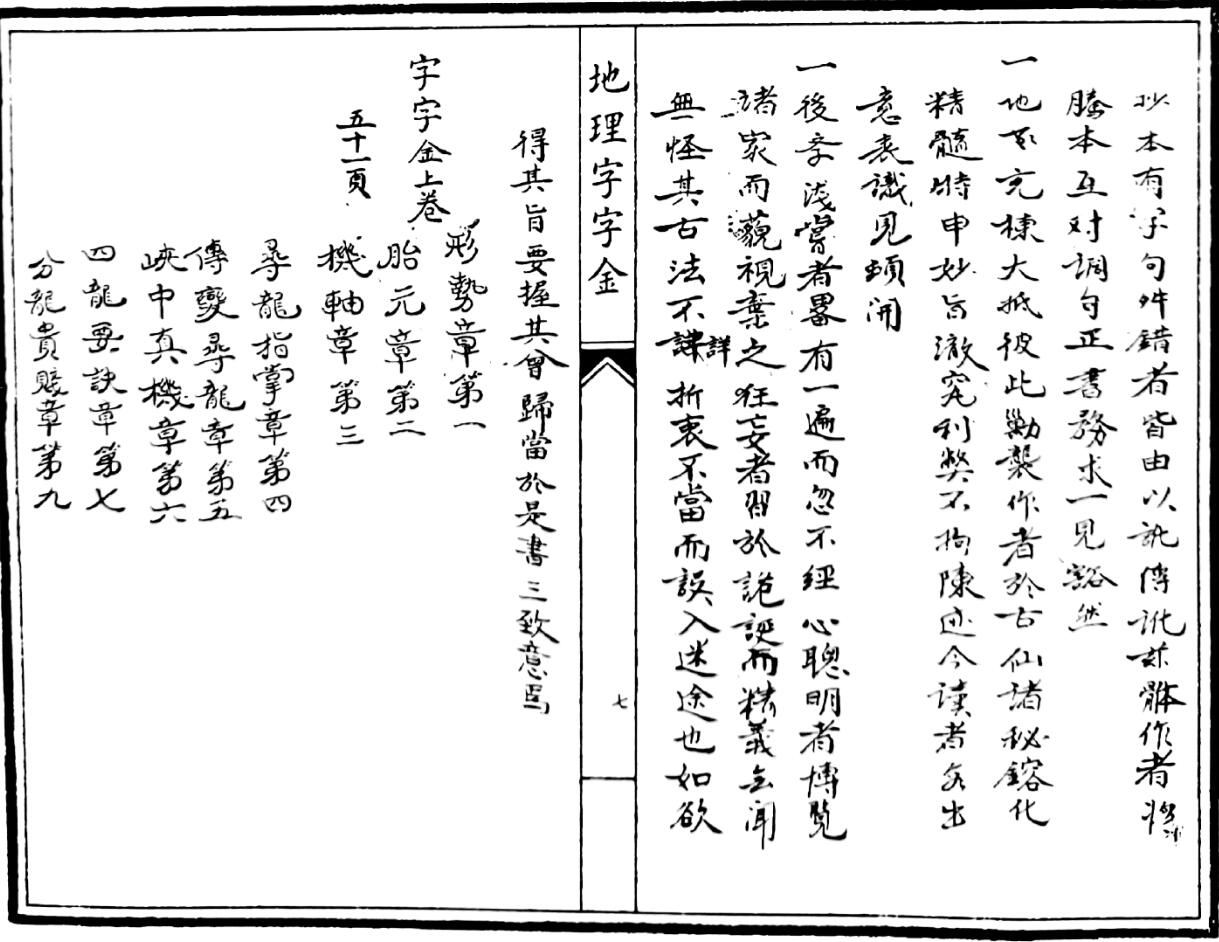 抄本有字句舛錯者皆由以訛傳訛茲體作者將
騰本互对調句正書務求一見豁然
一地書充棟大抵彼此勦襲作者於古仙諸秘鎔化
精髓時申妙旨澈究利弊不拘陳迹今讀者多出
意表識見頓開
一後李淺嘗者畧有一遍而忽不經心聰明者博覽
諸家而藐視棄之狂妄者習於詭誕而精義之聞
無怪其古法不講詳折衷不當而誤入迷途也如欲
地理字字金
七
得其旨要握其會歸當於是書三致意焉
字字金上卷
五十一頁
形勢章第一
胎元章第二
機軸章第三
尋龍指掌章第四
傳變尋龍章第五
峽中真機章第六
四龍要訣章第七
分龍貴賤章第九